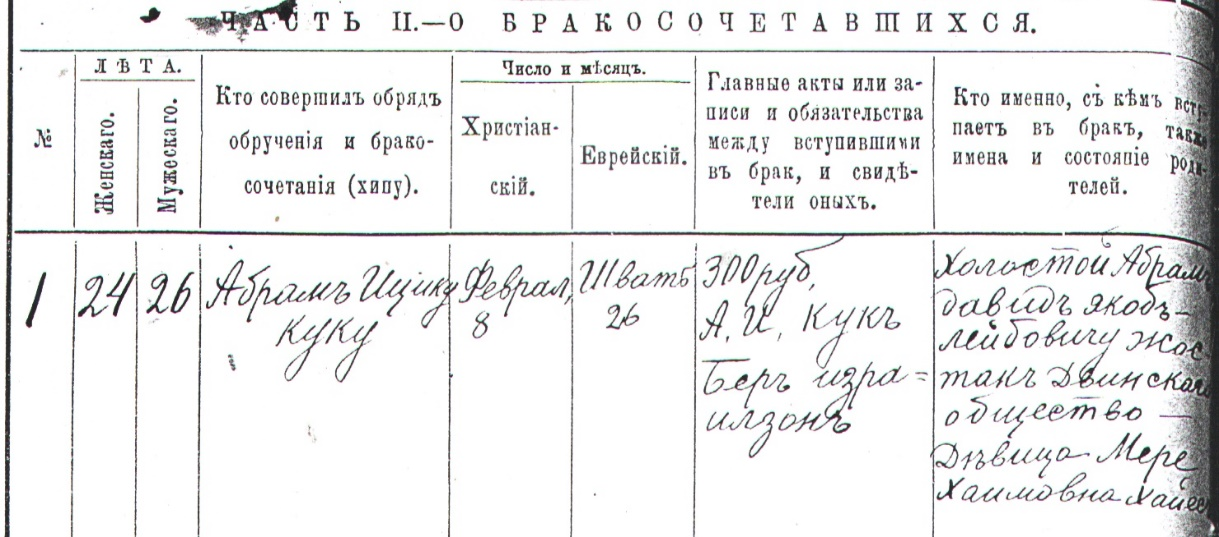 ЧАСТЬ II.—О БРАКОСОЧЕТАВШИХСЯ.
№
ЛѢТА.
Женскаго.
Мужескаго.
Кто совершилъ обрядъ
обрученія и брако-
сочетанія (хипу).
Число и мѣсяцъ.
Христіан-
скій.
Еврейскій.
Главные акты или за-
писи и обязательства
между вступившими
въ брак, и свидѣ-
тели оныхъ.
Кто именно, съ кѣмъ всту-
паетъ въ бракъ, также
имена и состояніе роди-
телей.
1
24
26
Абрамъ Ицику
куку
Феврал,
8
Шватъ
26
300 руб,
А. И, Кукъ
Беръ изра=
илзонъ
Холостой Абрамъ
давидъ якобъ-
лейбовичу жос-
такъ Двинскаго
общество —
Дѣвица Мере
Хаимовна